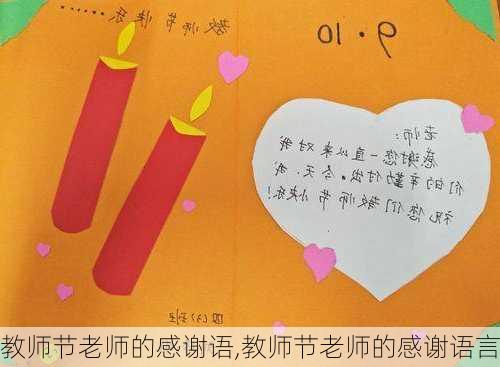 教师节快乐……
9·10
老师：
感谢您一直以来对我
们的辛勤付出。今天，我
祝您们教师节快乐！
教师节老师的感谢语,教师节老师的感谢语言